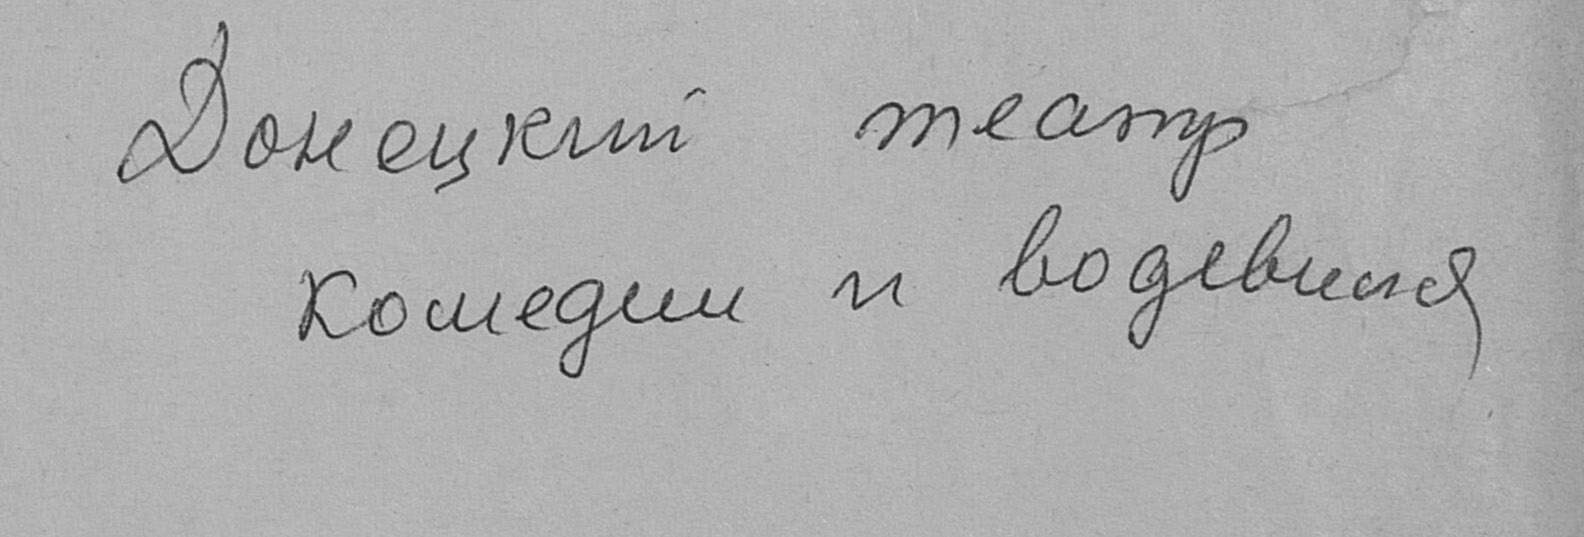 Донецкий театр
комедии и водевиля